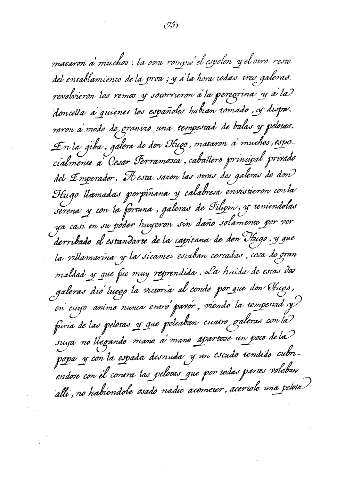 (75)
mataron á muchos: la otra rompió el espolon y el otro resto
del entablamiento de la proa; y á la hora todas tres galeras
revolvieron los remos y socorrieron á la peregrina y á la
doncella á quienes los españoles habian tomado, y dispa
raron á modo de granizo una tempestad de balas y pelotas.
En la giba, galera de don Hugo, mataron á muchos, espe
cialmente á Cesar Ferramosca, caballero principal privado
del Emperador. A esta sacon las otras dos galeras de don
Hugo llamadas perpiñana y calabresa envistieron con la
serena y con la fortuna, galeras de Filipin, y teniendolas
ya casi en su poder huyeron sin daño solamente por ver
derribado el estandarte de la capitana de don Hugo, y que
la villamarina y la sicames estaban cercadas, cosa de gran
maldad y que fue muy reprendida. La huida de estas dos
galeras dió luego la victoria al conde por que don Hugo,
en cuyo animo nunca entró pavor, viendo la tempestad y
furia de las pelotas y que peleaban cuatro galeras con la
suya no llegando mano á mano apartose un poco de la
popa y con la espada desnuda y un escudo tendido cubri
endose con él contra las pelotas que por todas partes volaban
alli, no habiendole osado nadie acometer, acertole una pelota